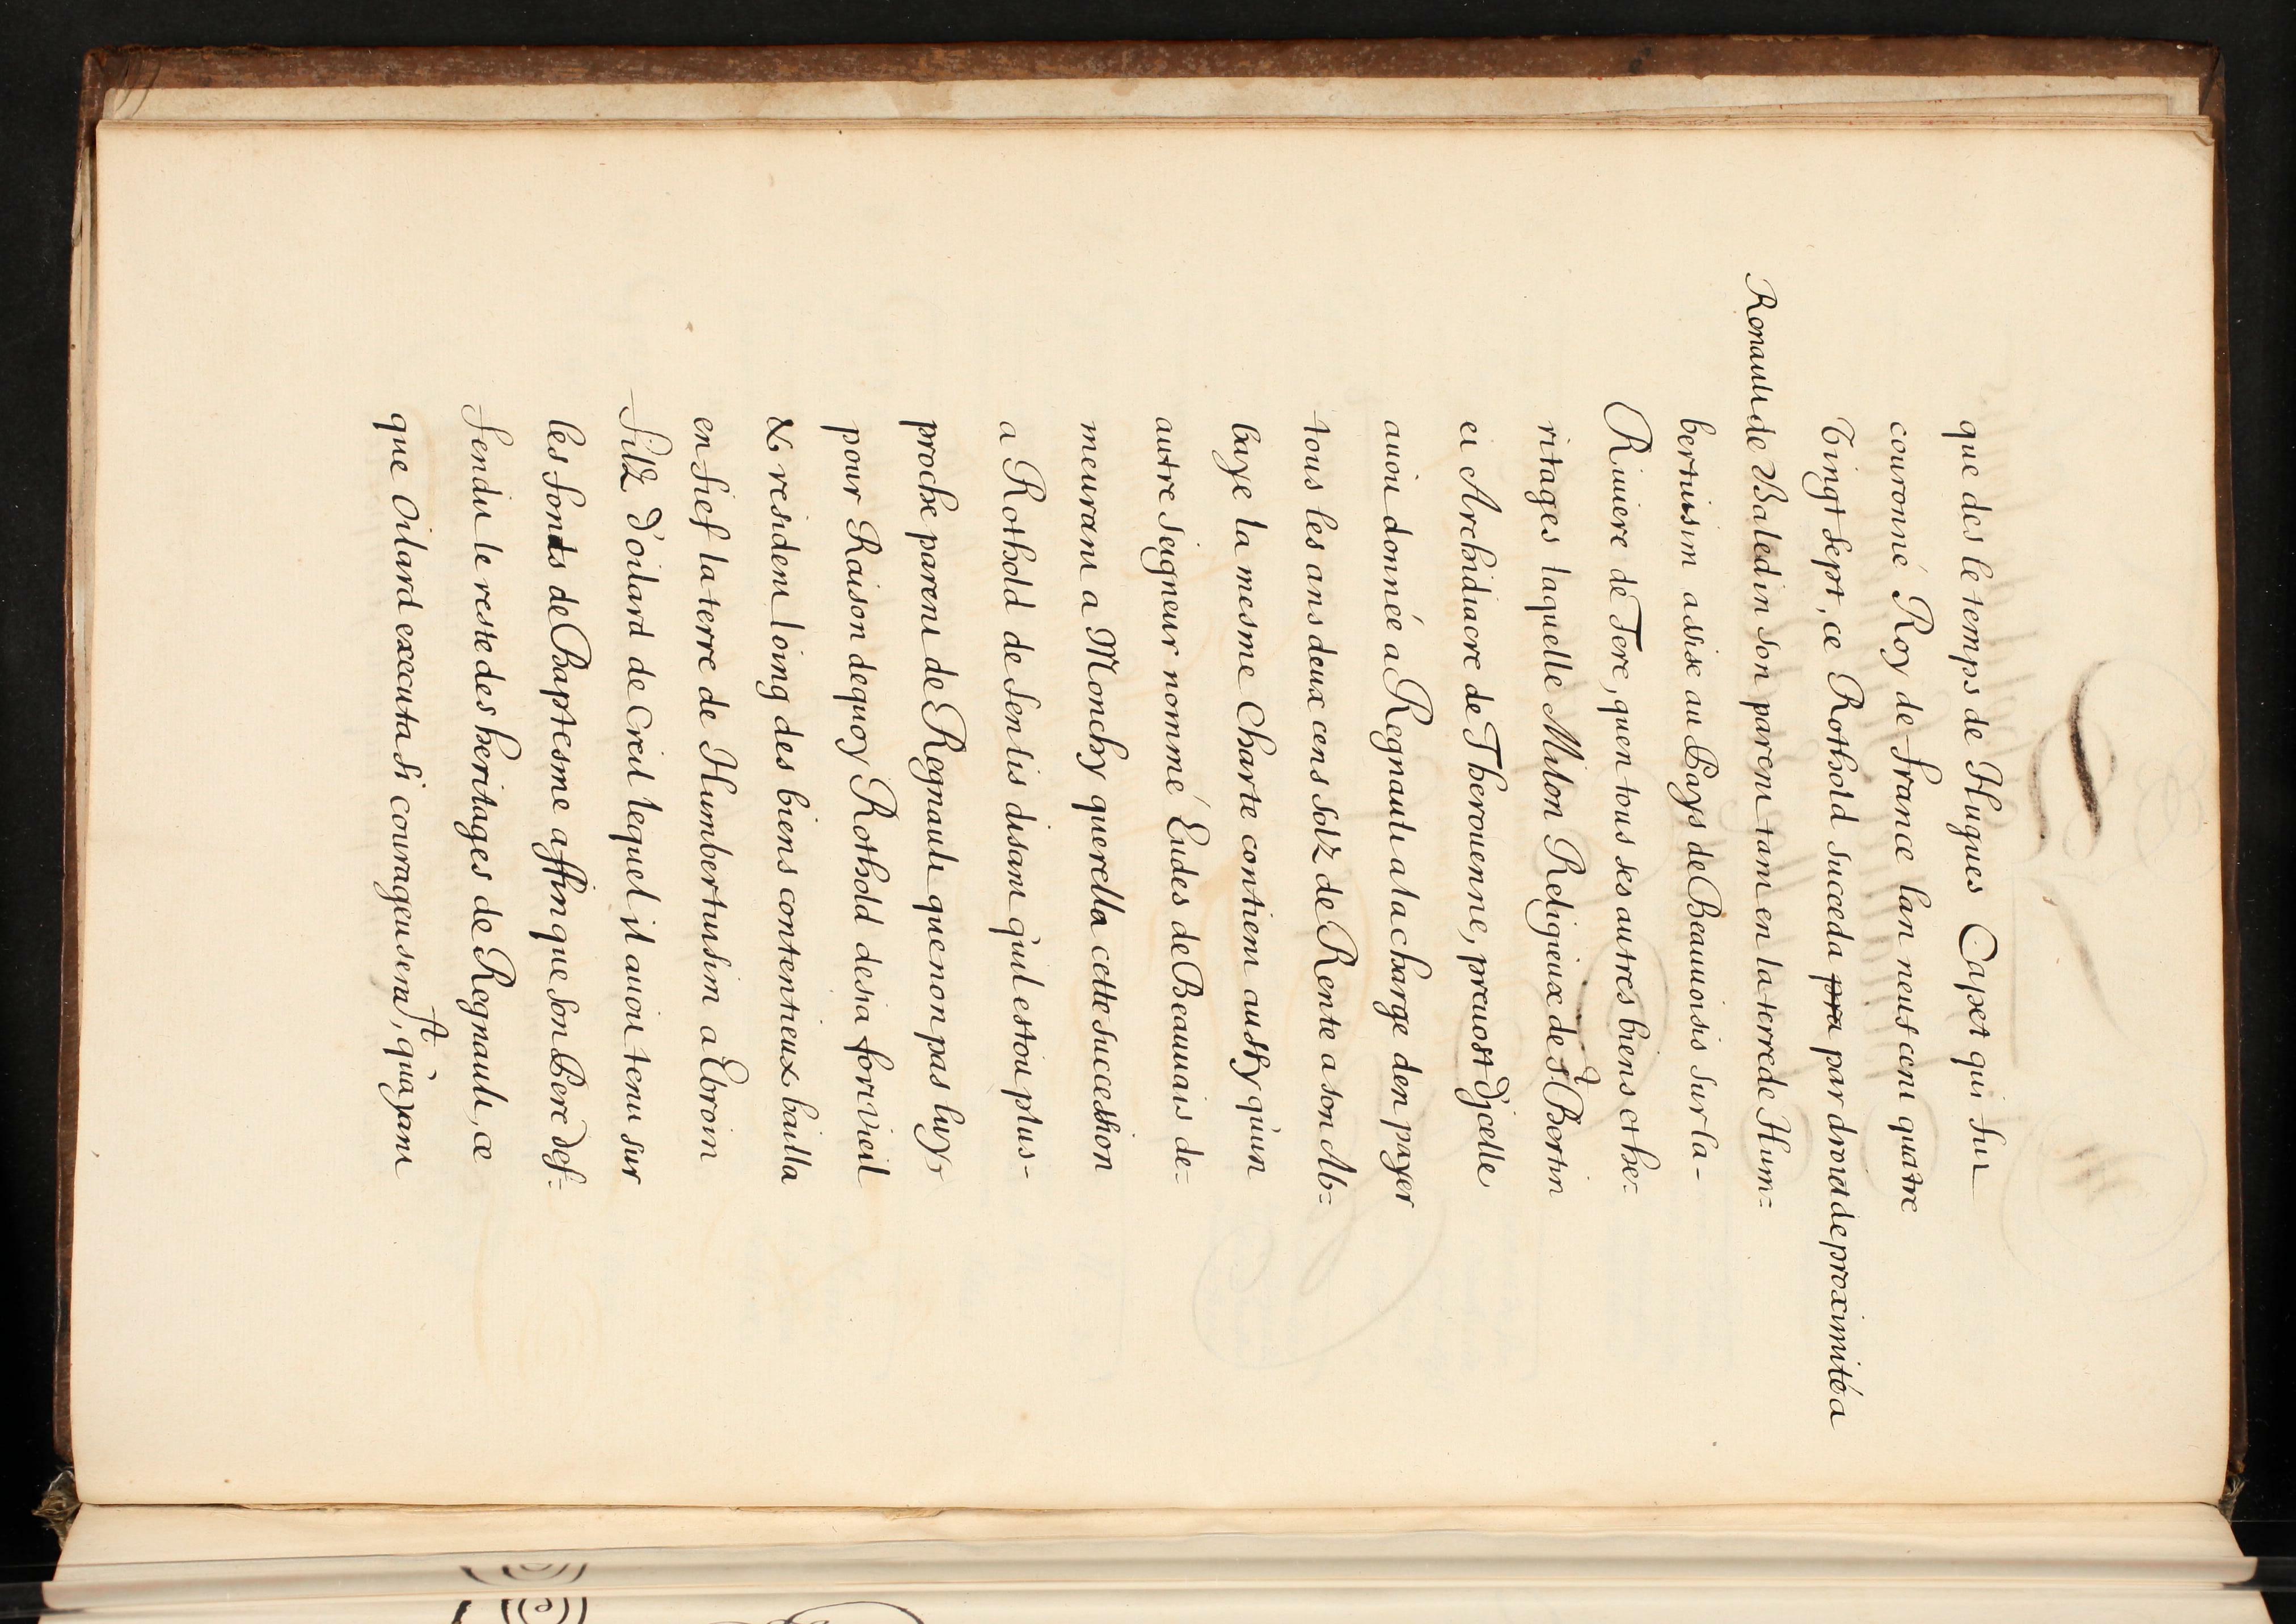 que des le temps de Hugues Capet qui fut
couronné Roy de france lan neuf cent quatre
Vingt sept, ce Rothold succeda pra par droict de proximité a
Renault de Baledin son parent tant en la terre de Hum=
bertuisin assise au Pays de Beauuoisis sur la-
Riuiere de Tere, quen tous ses autres biens et he=
ritages laquelle Milon Religieux de st Bertin
et Archidiacre de Therouenne, preuost djcelle
auoit donnée a Regnault a la charge den payer
tous les ans deux cens solz de Rente a son Ab=
baye la mesme Charte contient aussy q'un
autre seigneur nommé Eudes de Beauuais de=
meurant a Monchy querella cette succession
a Rothold de Senlis disant quil estoit plus-
proche parent de Regnault que non pas luy,
pour Raison dequoy Rothold desia fort vieil
& resident loing des biens contentieux bailla
en fief la terre de Humbertusin a Ebroin
filz d'oilard de Creil lequel il auoit tenu sur
les fonts de Baptesme affin que son Pere def=
fendit le reste des heritages de Regnault, ce
que Oilard executa si courageusemt, qu'ayant